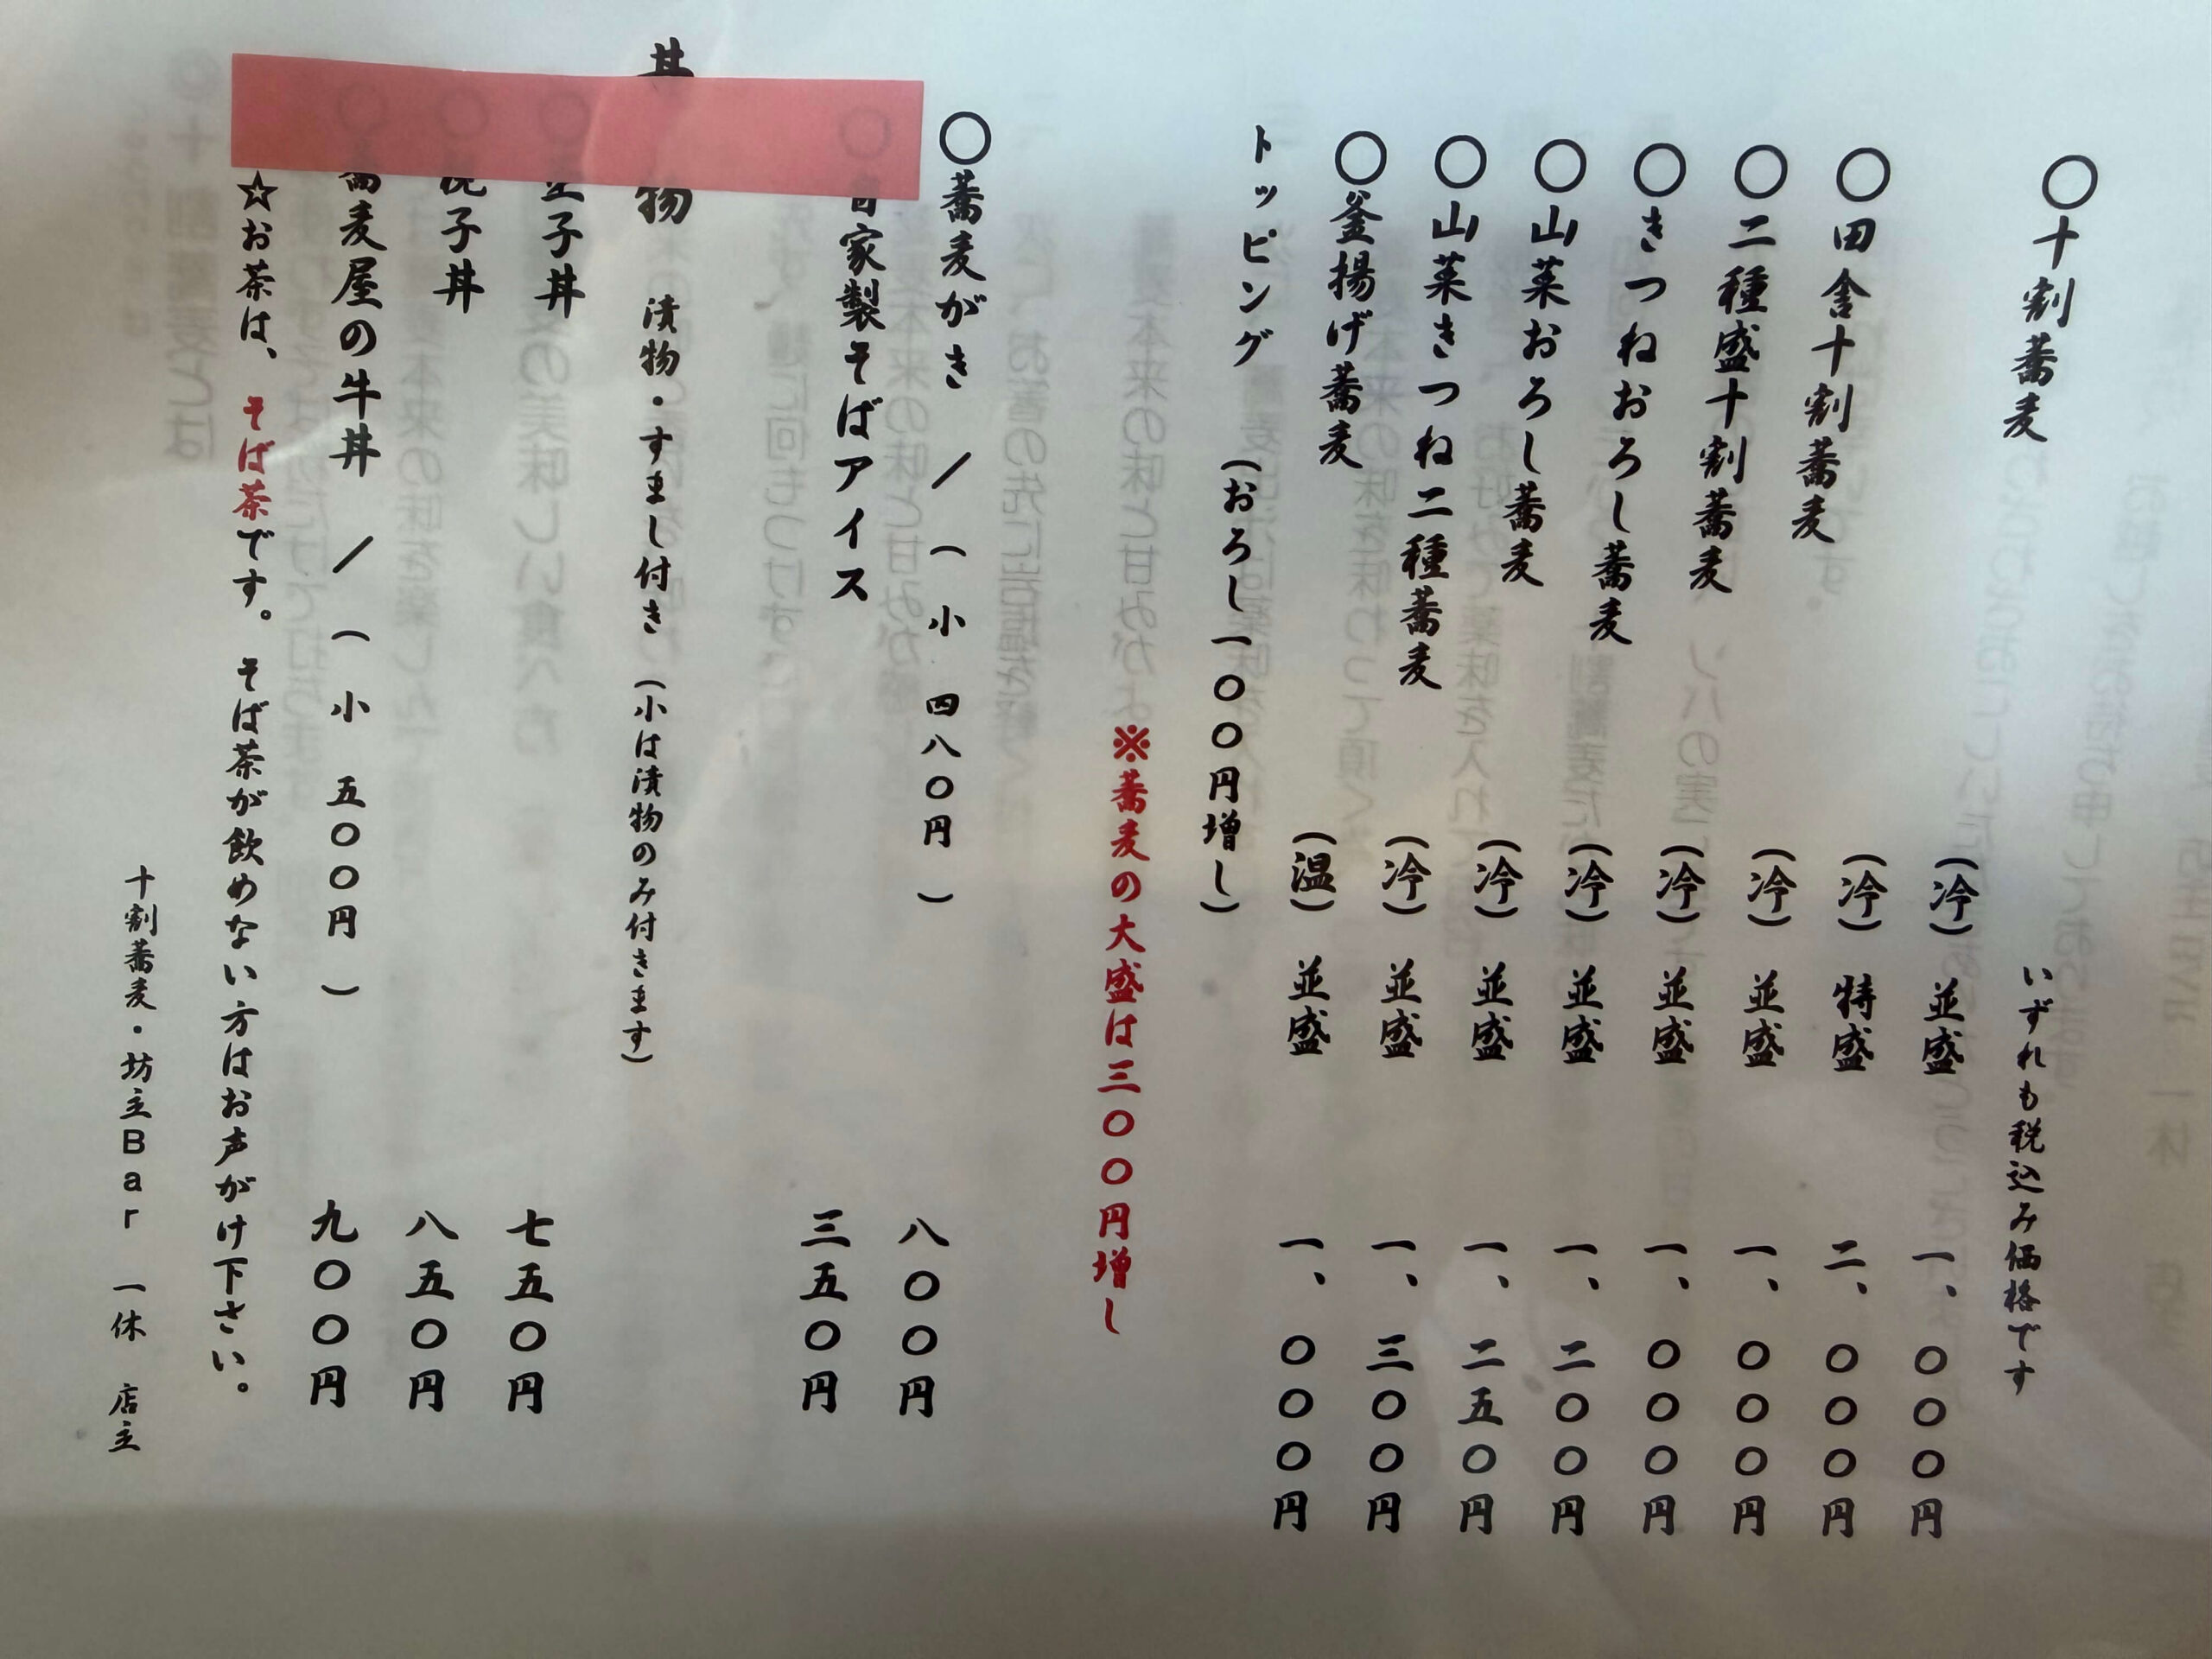 ○十割蕎麦 いずれも税込み価格です
(冷) 並盛 一、〇〇〇円
(冷) 特盛 二、〇〇〇円
○田舎十割蕎麦 (冷) 並盛 一、〇〇〇円
○二種盛十割蕎麦 (冷) 並盛 一、〇〇〇円
○きつねおろし蕎麦 (冷) 並盛 一、二〇〇円
○山菜おろし蕎麦 (冷) 並盛 一、二五〇円
○山菜きつね二種蕎麦 (冷) 並盛 一、三〇〇円
○釜揚げ蕎麦 (温) 並盛 一、〇〇〇円
トッピング (おろし一〇〇円増し)
※蕎麦の大盛は三〇〇円増し
○蕎麦がき / ( 小 四八〇円 ) 八〇〇円
○自家製そばアイス 三五〇円
丼物 漬物・すまし付き (小は漬物のみ付きます)
○子丼 七五〇円
○子丼 八五〇円
○蕎麦屋の牛丼 / ( 小 五〇〇円 ) 九〇〇円
☆お茶は、そば茶です。そば茶が飲めない方はお声がけ下さい。
十割蕎麦・坊主Bar 一休 店主